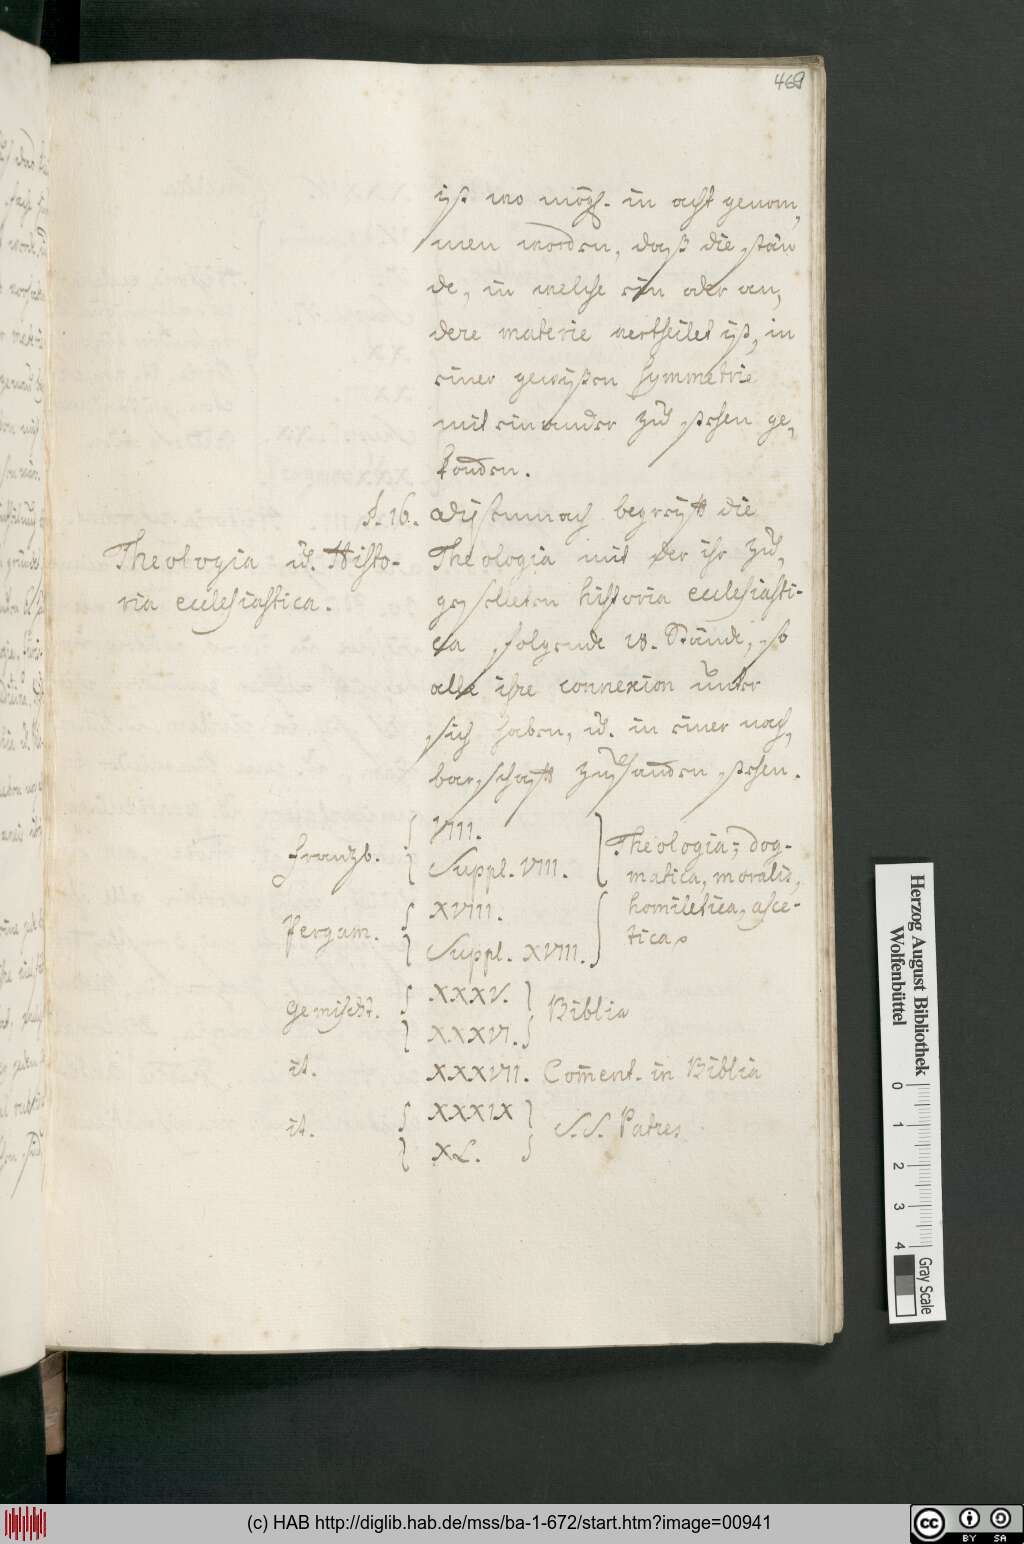 469
ist wo mögl. in acht genom,
men worden, daß die stän
de, in welche ein oder an,
dere materie vertheilet ist, in
einer gewißen Symmetrie
mit einander zu stehen ge,
standen.
§. 16. Disemnach begreifft die
Theologia u. Histo-
ria ecclesiastica.
Theologia mit der ihr zu,
geselleten historia ecclesiasti-
ca folgende 18. Stände, so
alle ihre connexion unter
sich haben, u. in einer nach,
barschafft zusanden stehen.
Franzb. VIII.
Suppl. VIII.
Pergam. XVIII.
Suppl. XVIII.
Theologia; dog-
matica, moralis,
homiletica, asce-
tica
Gemischt. XXXV.
XXXVI. Biblia
it. XXXVII. Coment. in Biblia
it. XXXIX
XL. S.S. Patres
Herzog August Bibliothek
Wolfenbüttel
0 1 2 3 4
Gray Scale
(c) HAB http://diglib.hab.de/mss/ba-1-672/start.htm?image=00941
cc BY SA